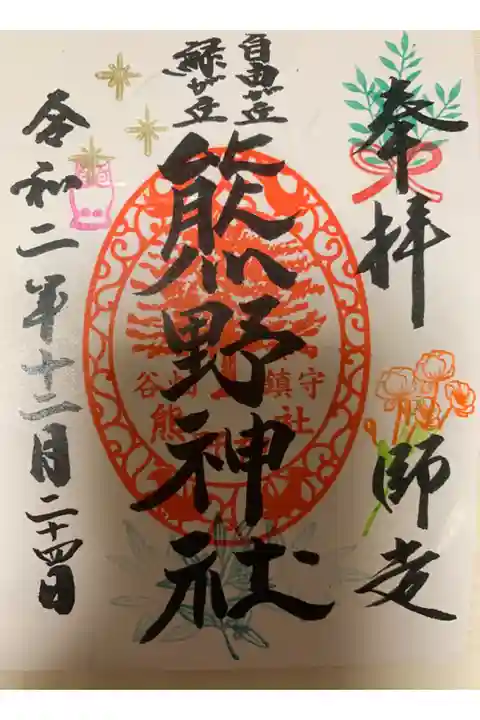 奉拝
師走
自由が丘
緑が丘
熊野神社
令和二年十二月二十四日
鎮守